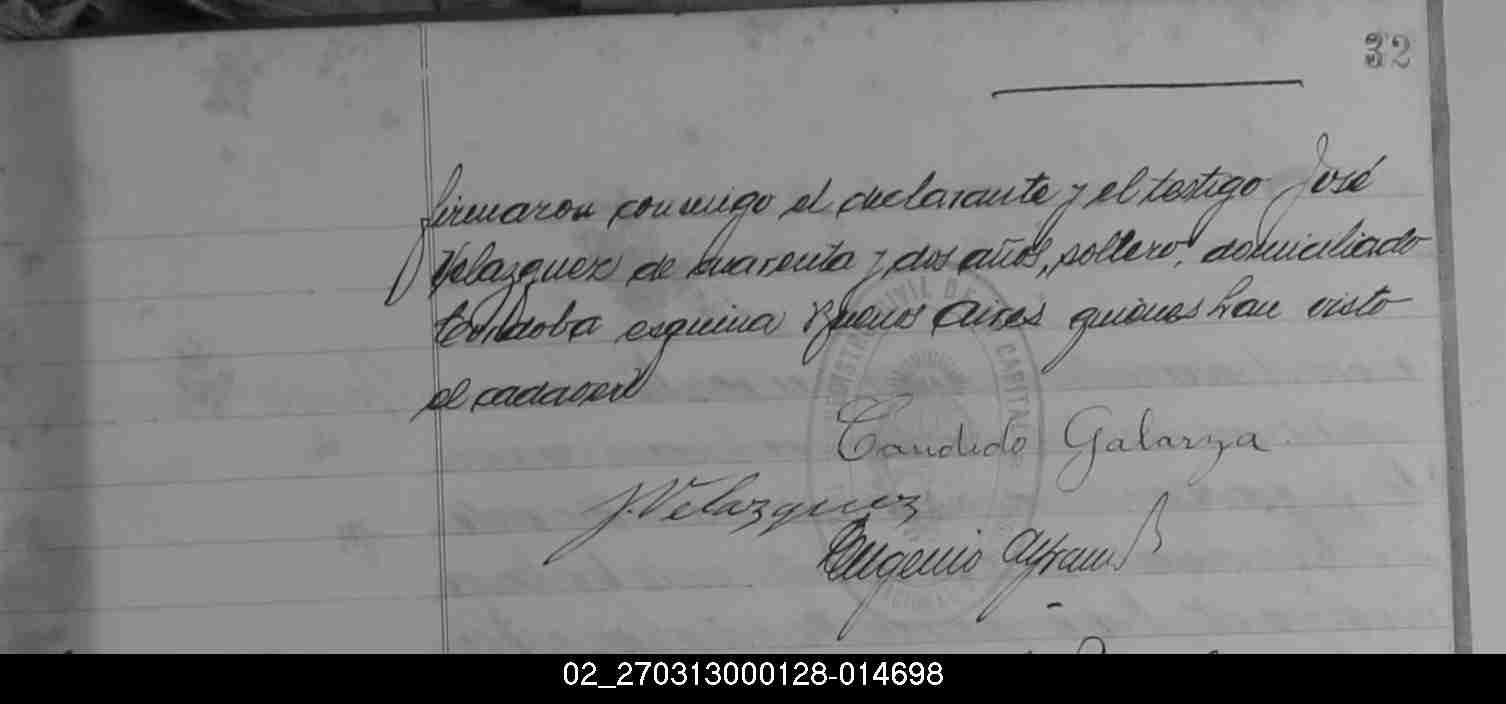 32
firmaron conmigo el declarante y el testigo José
Velazquez de cuarenta y dos años, soltero, domiciliado
Cordoba esquina Buenos Aires quienes han visto
el cadaver
Candido Galarza
J. Velazquez
Eugenio
REGISTRO CIVIL DE CAPITAL
02_270313000128-014698